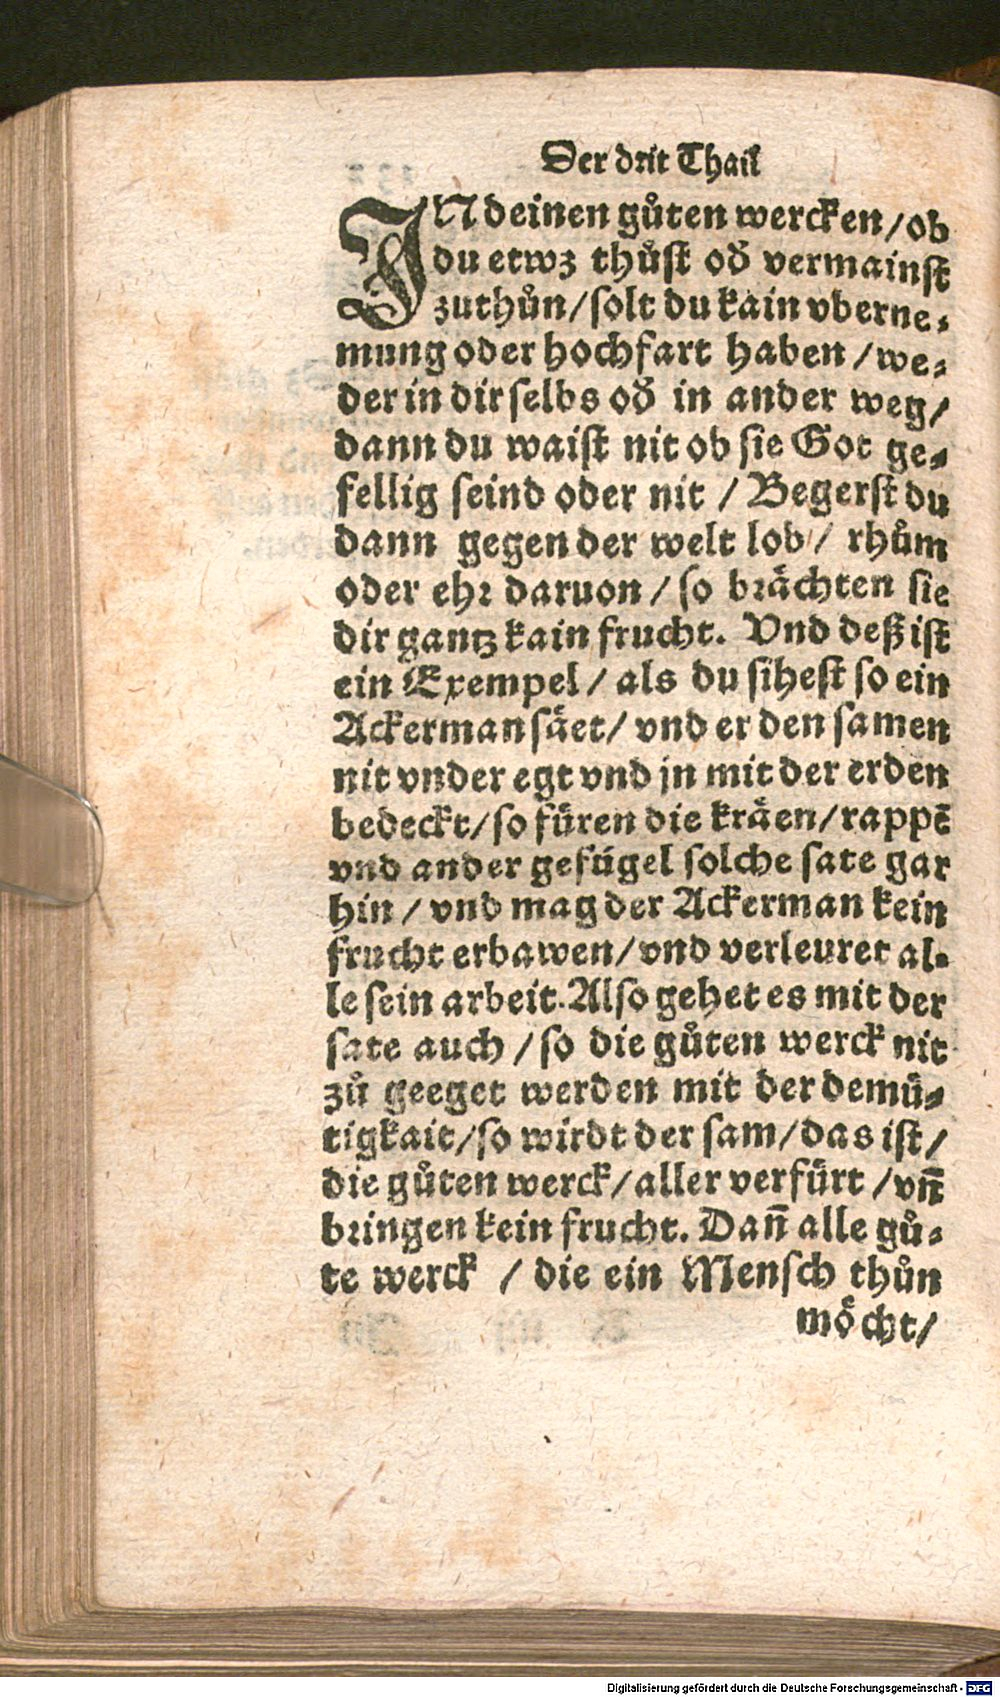 Der drit Thail
IN deinen gůten wercken/ob
du etwz thůst oď vermainst
zuthůn/solt du kain vberne⸗
mung oder hochfart haben/we⸗
der in dir selbs oď in ander weg/
dann du waist nit ob sie Got ge⸗
fellig seind oder nit / Begerst du
dann gegen der welt lob/ rhům
oder ehr daruon/so brächten sie
dir gantz kain frucht. Vnd deß ist
ein Exempel/als du sihest so ein
Ackerman säet/vnd er den samen
nit vnder egt vnd jn mit der erden
bedeckt/so füren die kräen/rappē
vnd ander gefügel solche sate gar
hin/vnd mag der Ackerman kein
frucht erbawen/vnd verleuret al⸗
le sein arbeit. Also gehet es mit der
sate auch/so die gůten werck nit
zů geeget werden mit der demü⸗
tigkait/so wirdt der sam/das ist/
die gůten werck/aller verfürt/vñ
bringen kein frucht. Dañ alle gů⸗
te werck / die ein Mensch thůn
möcht/
Digitalisierung gefördert durch die Deutsche Forschungsgemeinschaft - DFG